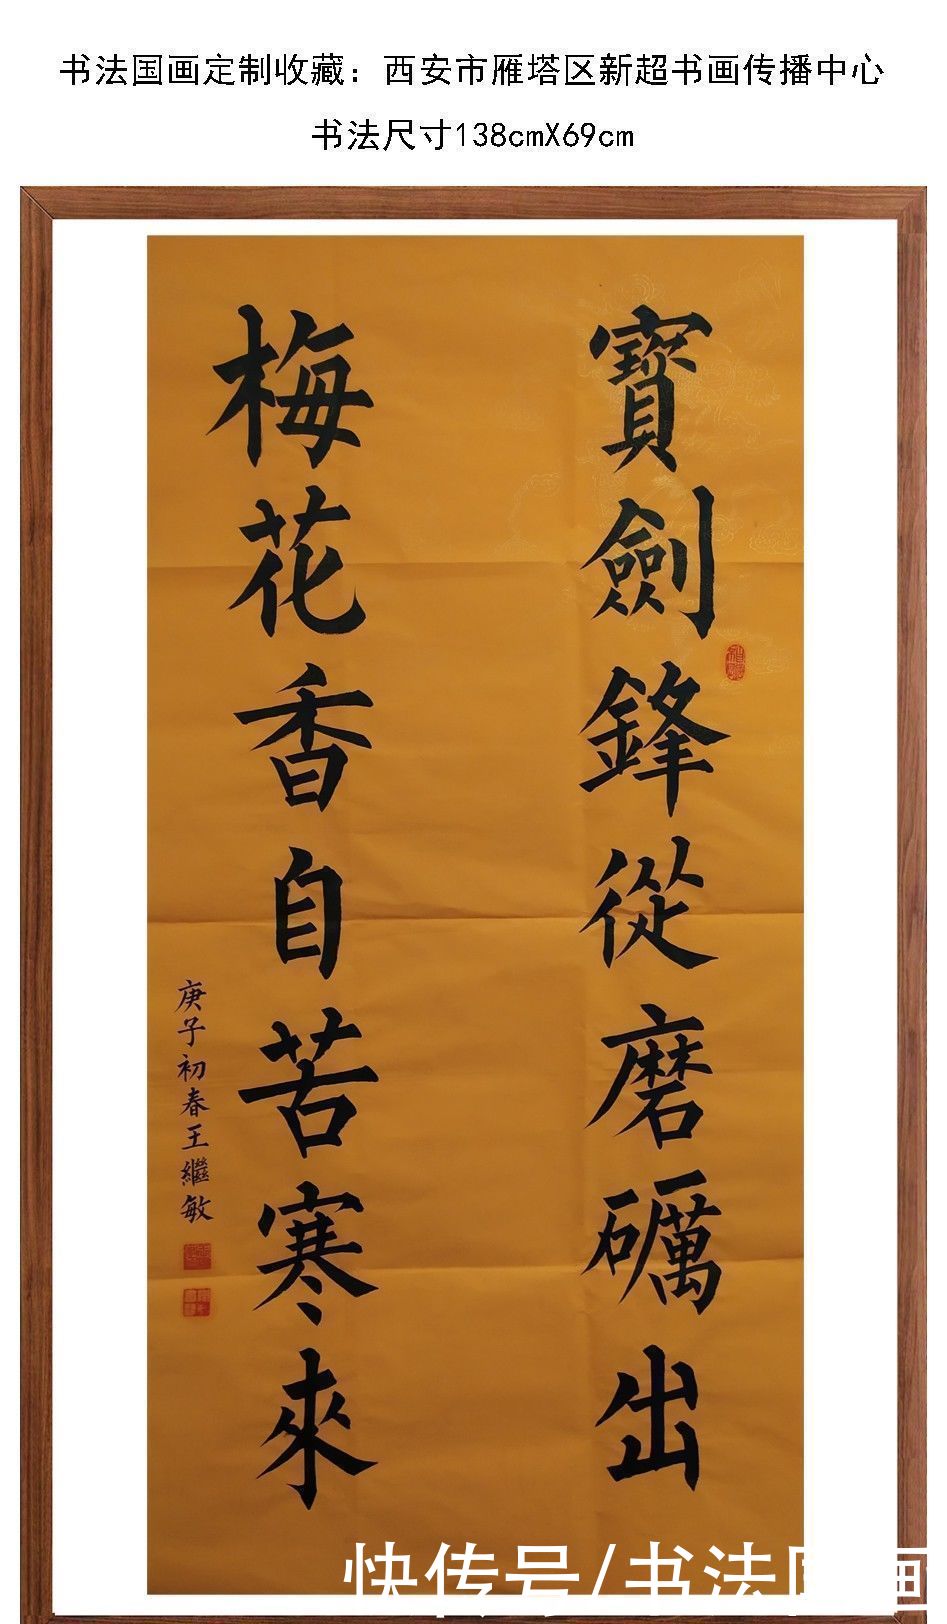 书法国画定制收藏：西安市雁塔区新超书画传播中心
书法尺寸138cmX69cm
寶劍鋒從磨礪出
梅花香自苦寒來
庚子初春王繼敏
快传号/书法国画